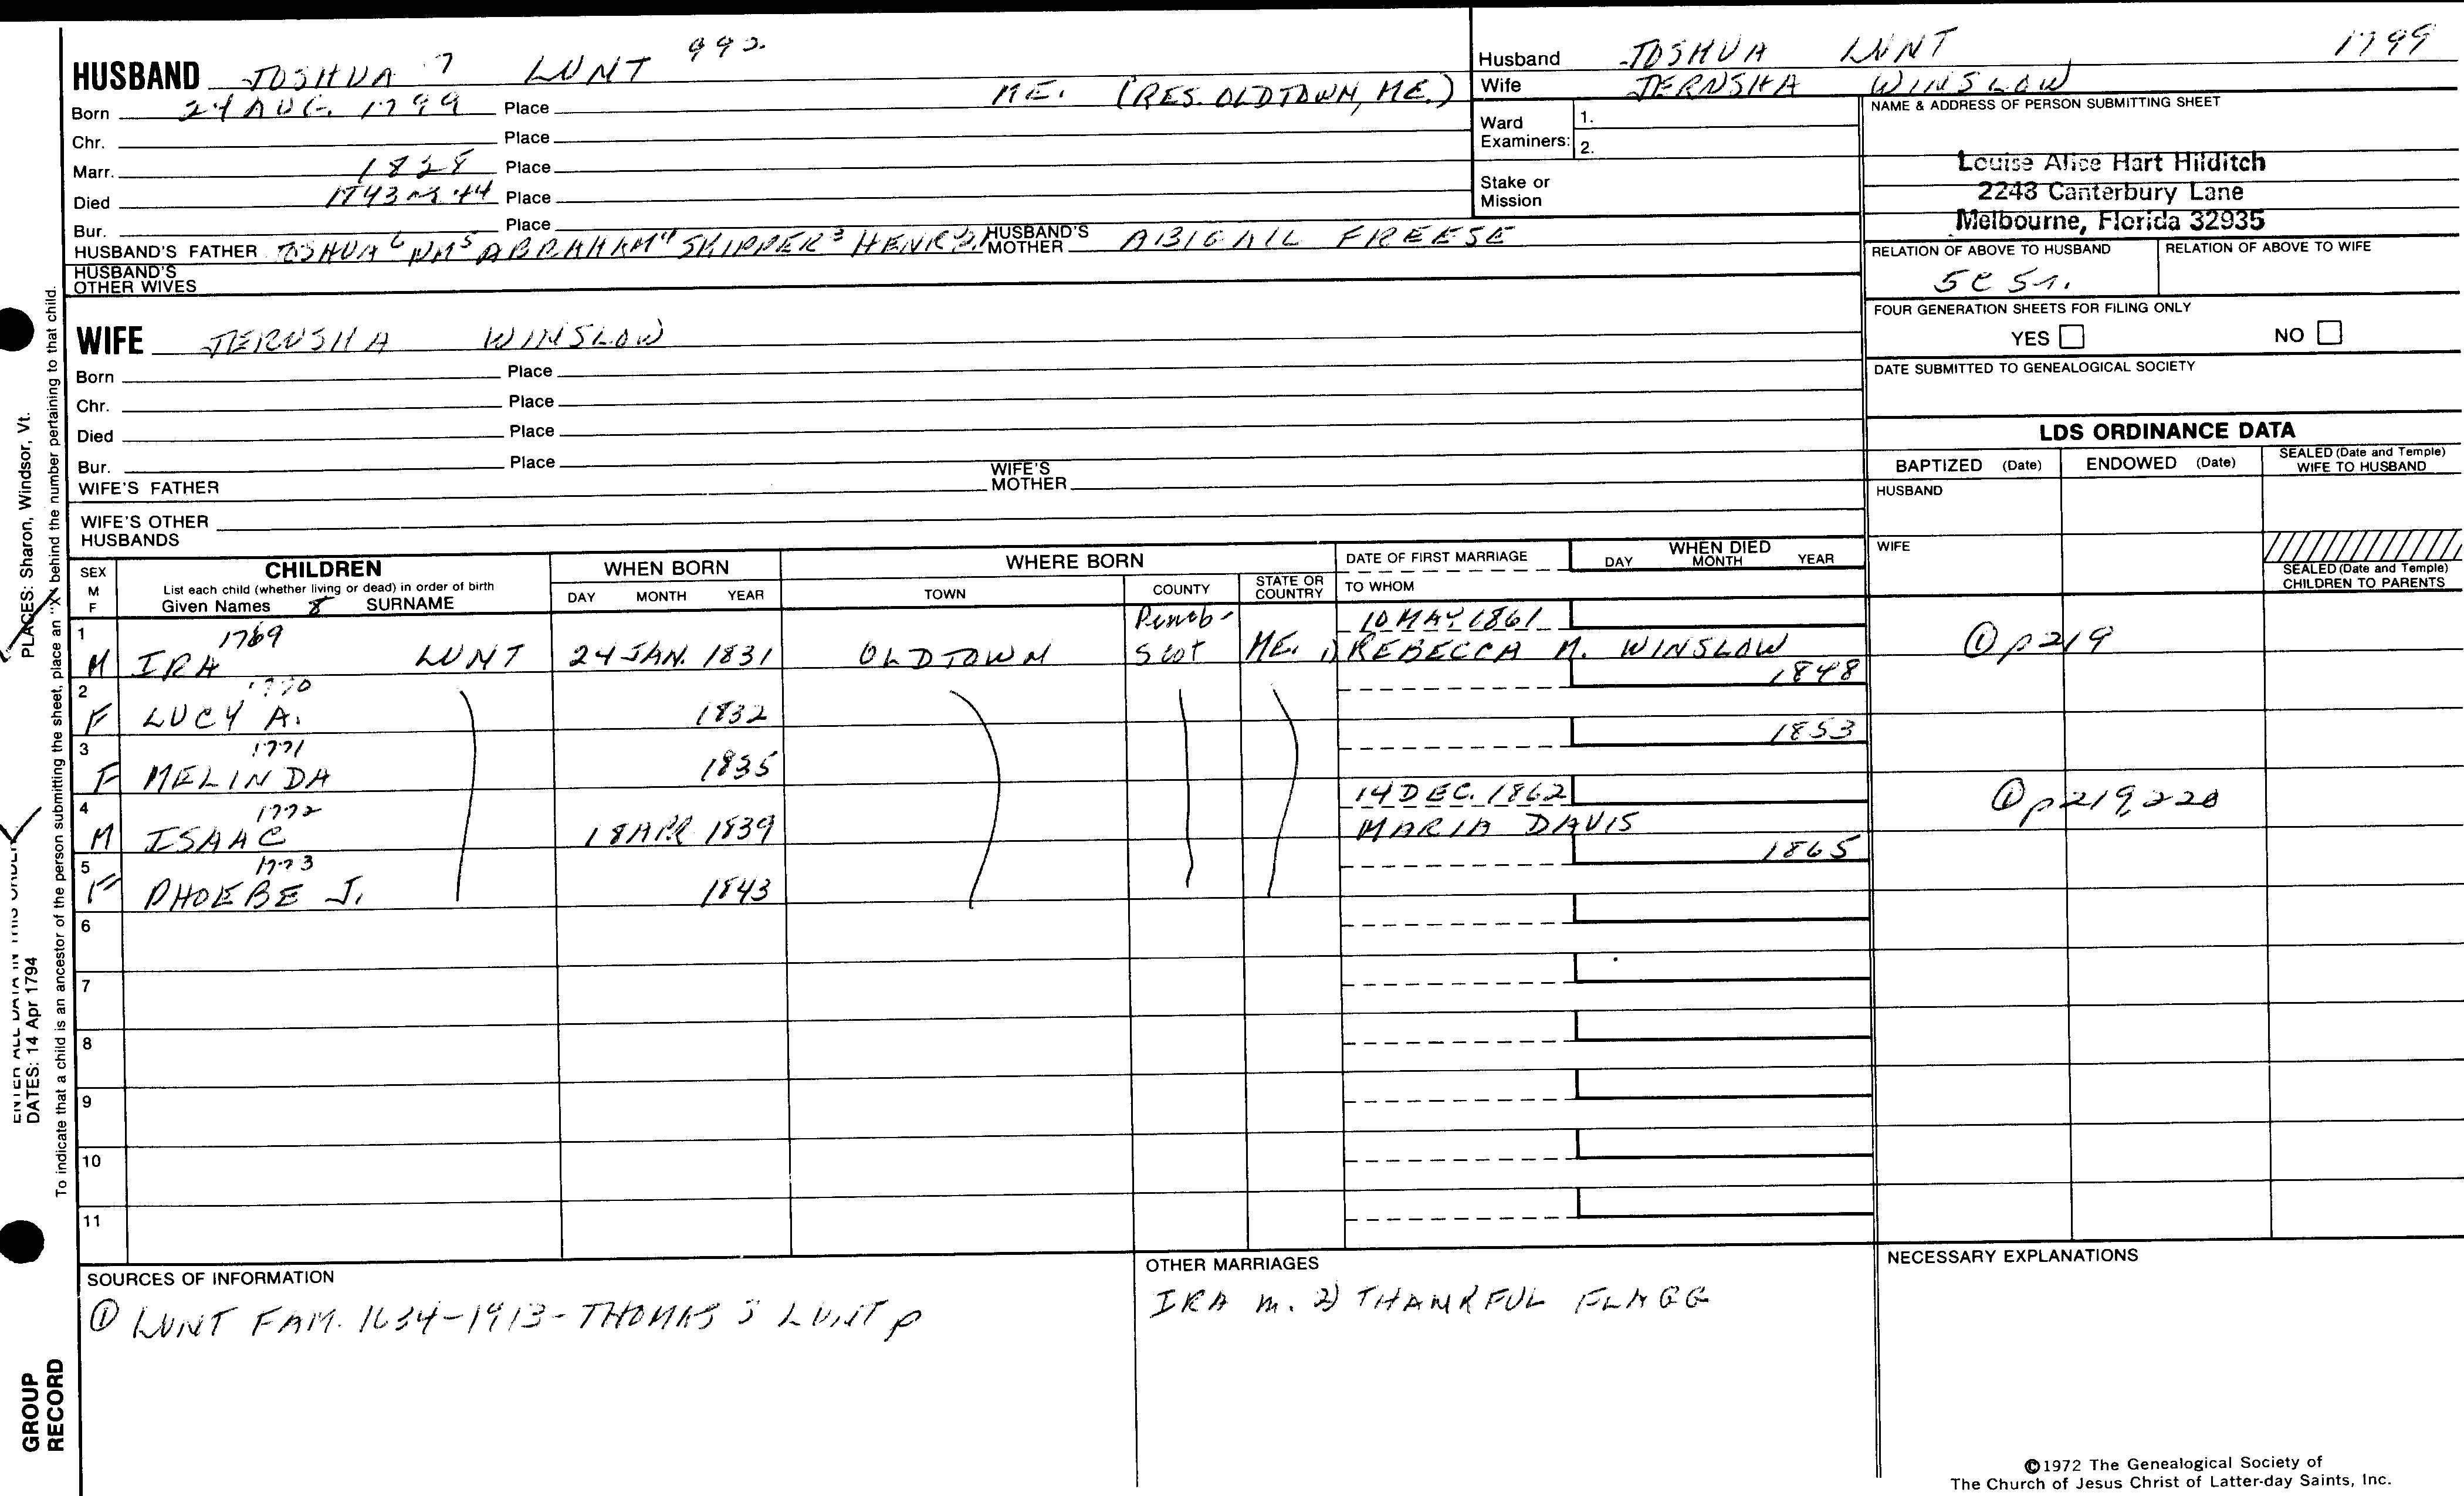 HUSBAND JOSHUA 7 LUNT 992
Born 24 AUG. 1799 Place ME. (RES. OLDTOWN, ME.)
Chr. Place
Marr. 1828 Place
Died 1843 44 Place
Bur. Place
HUSBAND'S FATHER JOSHUA 6 WM 5 ABRAHAM 4 SKIPPER 3 HENRY HUSBAND'S MOTHER ABIGAIL FREESE
HUSBAND'S OTHER WIVES
WIFE JERUSHA WINSLOW
Born Place
Chr. Place
Died Place
Bur. Place
WIFE'S FATHER WIFE'S MOTHER
WIFE'S OTHER HUSBANDS
Husband JOSHUA LUNT 1799
Wife JERUSHA WINSLOW
Ward Examiners: 1.
2.
Stake or Mission
NAME & ADDRESS OF PERSON SUBMITTING SHEET
Louise Alice Hart Hilditch
2243 Canterbury Lane
Melbourne, Florida 32935
RELATION OF ABOVE TO HUSBAND RELATION OF ABOVE TO WIFE
5C
FOUR GENERATION SHEETS FOR FILING ONLY
YES NO
DATE SUBMITTED TO GENEALOGICAL SOCIETY
LDS ORDINANCE DATA
BAPTIZED (Date) ENDOWED (Date) SEALED (Date and Temple) WIFE TO HUSBAND
HUSBAND
WIFE
SEALED (Date and Temple) CHILDREN TO PARENTS
SEX M F
CHILDREN
List each child (whether living or dead) in order of birth
Given Names 8 SURNAME
WHEN BORN
DAY MONTH YEAR
WHERE BORN
TOWN COUNTY STATE OR COUNTRY
DATE OF FIRST MARRIAGE
TO WHOM
WHEN DIED
DAY MONTH YEAR
1 1769 Penob- 10 MAY 1861
M IRA LUNT 24 JAN. 1831 OLDTOWN Scot ME. 1) REBECCA M. WINSLOW ① p219
2 1770 1848
F LUCY A. 1832
3 1771 1853
F MELINDA 1835
4 1772 14 DEC. 1862 ① p219,220
M ISAAC 18 APR 1839 MARIA DAVIS
5 1773 1865
F PHOEBE J. 1843
6
7
8
9
10
11
SOURCES OF INFORMATION
① LUNT FAM. 1634-1913 - THOMAS S LUNT p
OTHER MARRIAGES
IRA m. 2) THANKFUL FLAGG
NECESSARY EXPLANATIONS
©1972 The Genealogical Society of
The Church of Jesus Christ of Latter-day Saints, Inc.
PLACES: Sharon, Windsor, Vt.
ENTER ALL DATA IN THIS ORDER
DATES: 14 Apr 1794
To indicate that a child is an ancestor of the person submitting the sheet, place an "X" behind the number pertaining to that child.
GROUP
RECORD